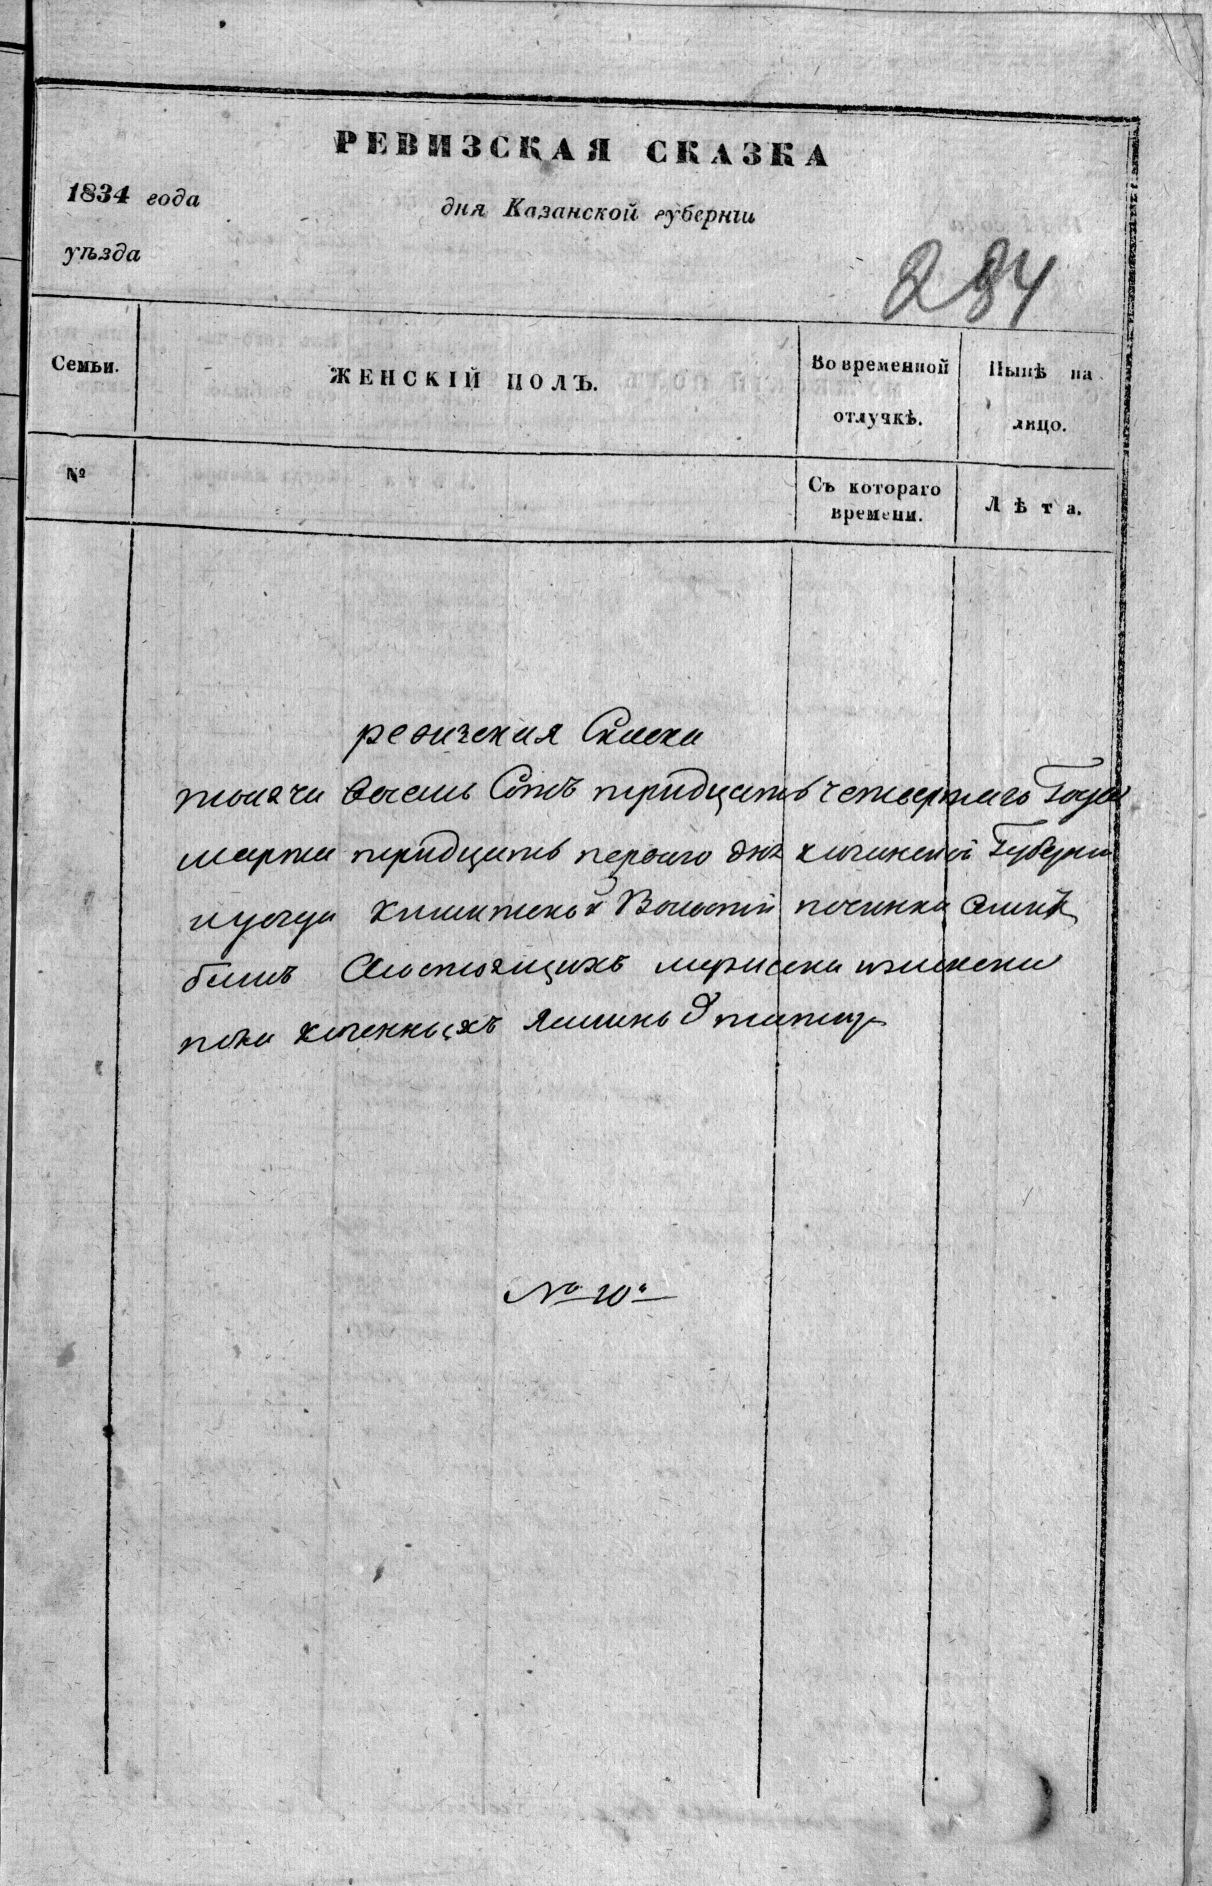 РЕВИЗСКАЯ СКАЗКА
1834 года
дня Казанской губерніи
уѣзда
284
Семьи.
ЖЕНСКІЙ ПОЛЪ.
Во временной отлучкѣ.
Нынѣ на лицо.
№
Съ котораго времени.
Лѣта.
ревизская Скаска
тысячи восемь Сотъ тридцать четвертаго Года
марта тридцать перваго дня казанской Губерни
и уезда Вольостти починка
состоящихъ мужеска и женска
пола казенныхъ ясашныхъ татар
№ 10й